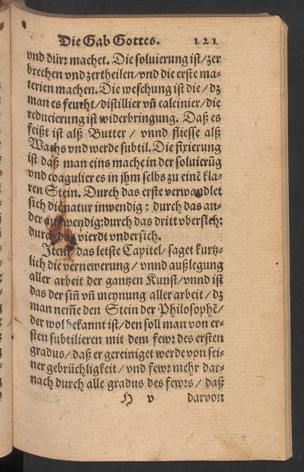 Die Gab Gottes. 121
vnd dürr machet. Die soluierung ist / zer
brechen vnd zertheilen / vnd die erste ma-
terien machen. Die weschung ist die / dz
man es feucht / distillier vñ calcinier / die
reducierung ist widerbringung. Daß es
feißt ist alß Butter / vnnd fliesse alß
Wachs vnd werde subtil. Die fixierung
ist daß man eins mache in der soluierũg
vnd coagulier es in jhm selbs zu einẽ kla-
ren Stein. Durch das erste verwandlet
sich die natur inwendig : durch das an-
der außwendig: durch das dritt vbersich:
durch das vierdt vndersich.
Item / das letste Capitel / saget kurtz-
lich die vernewerung / vnnd außlegung
aller arbeit der gantzen Kunst / vnnd ist
das der siñ vñ meynung aller arbeit / dz
man nemẽ den Stein der Philosophẽ /
der wol bekannt ist / den soll man von er-
sten subtilieren mit dem fewr des ersten
gradus / daß er gereiniget werde von sei-
ner gebrüchligkeit / vnd fewr mehr dar-
nach durch alle gradus des fewrs / daß
H v darvon